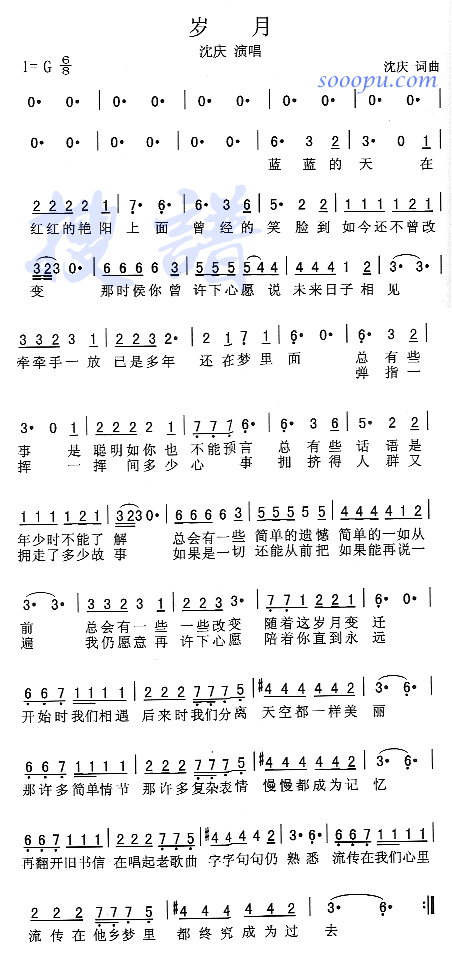 岁 月
沈庆 演唱
1= G 6/8 沈庆 词曲
sooopu.com
搜谱
0· 0· | 0· 0· | 0· 0· | 0· 0· | 0· 0· | 0· 0· |
0· 0· | 0· 0· | 0· 0· | 6· 3 2 | 3· 0 1 |
蓝 蓝 的 天 在
2 2 2 2 1 | 7· 6· | 6· 3 6 | 5· 2 2 | 0 1 1 1 2 1 |
红红的艳 阳 上 面 曾 经 的 笑 脸 到 如今还不曾改
3 2 3 0· | 6 6 6 6 3 | 5 5 5 5 5 4 4 | 3 4 1 2 | 3· 3· |
变 那时侯你曾 许下心愿 说 未来日子 相 见
3 3 3 3 1 | 2 2 3 3· | 2 1 7 1 | 6· 0· | 6· 3 2 |
牵牵手一 放 已是多年 还 在 梦 里 面 总 有 些
弹 指 一
3· 0 1 | 2 2 2 2 1 | 7 7 7 6· | 6· 3 3 | 5· 2 2 |
事 是 聪明如你 也 不能预言 总 有 些 话 语 是
挥 一 挥 间多少心 事 拥 挤 得 人 群 又
1 1 1 1 2 1 | 3 2 3 0· | 6 6 6 6 3 | 5 5 5 5 5 | 4 4 4 4 1 2 |
年少时不能了 解 总会有一些 简单的遗憾 简单的一如从
拥走了多少故 事 如果是一切 还能从前把 如果能再说一
3· 3· | 3 3 3 2 3 1 | 2 2 2 3 3· | 7 7 1 2 2 1 | 6· 0· |
前 总会有一些 一些改变 随着这岁月变 迁
遍 我仍愿意再 许下心愿 陪着你直到永 远
6 6 7 1 1 1 1 | 2 2 2 7 7 7 5 | #4 4 4 4 4 2 | 3· 6· |
开始时我们相遇 后来时我们分离 天空都一样美 丽
6 6 7 1 1 1 1 | 2 2 2 7 7 7 5 | #4 4 4 4 4 2 | 3· 6· |
那许多简单情节 那许多复杂表情 慢慢都成为记 忆
6 6 7 1 1 1 1 | 2 2 2 2 7 7 5 | #4 4 4 4 4 2 | 3· 6· | 6 6 7 1 1 1 1 |
再翻开旧书信 在唱起老歌曲 字字句句仍 熟 悉 流传在我们心里
2 2 2 7 7 7 5 | #4 4 4 4 4 2 | 3· 6· | 6· 0· :||
流 传 在 他乡梦 里 都 终 究 成 为 过 去